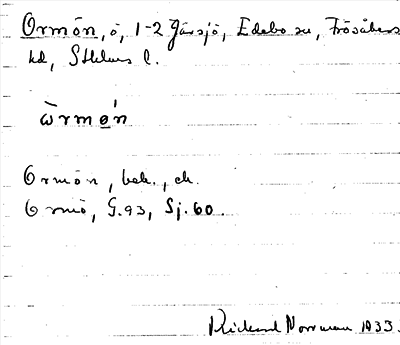 Ormön, ö, 1-2 Gåssjö, Edebo sn, Frösåkers
hd, Sthlms l.
ẁrmǿn
Ormön, bek., ek.
Ormö, G.93, Sj.60.
Rickard Norrman 1933.